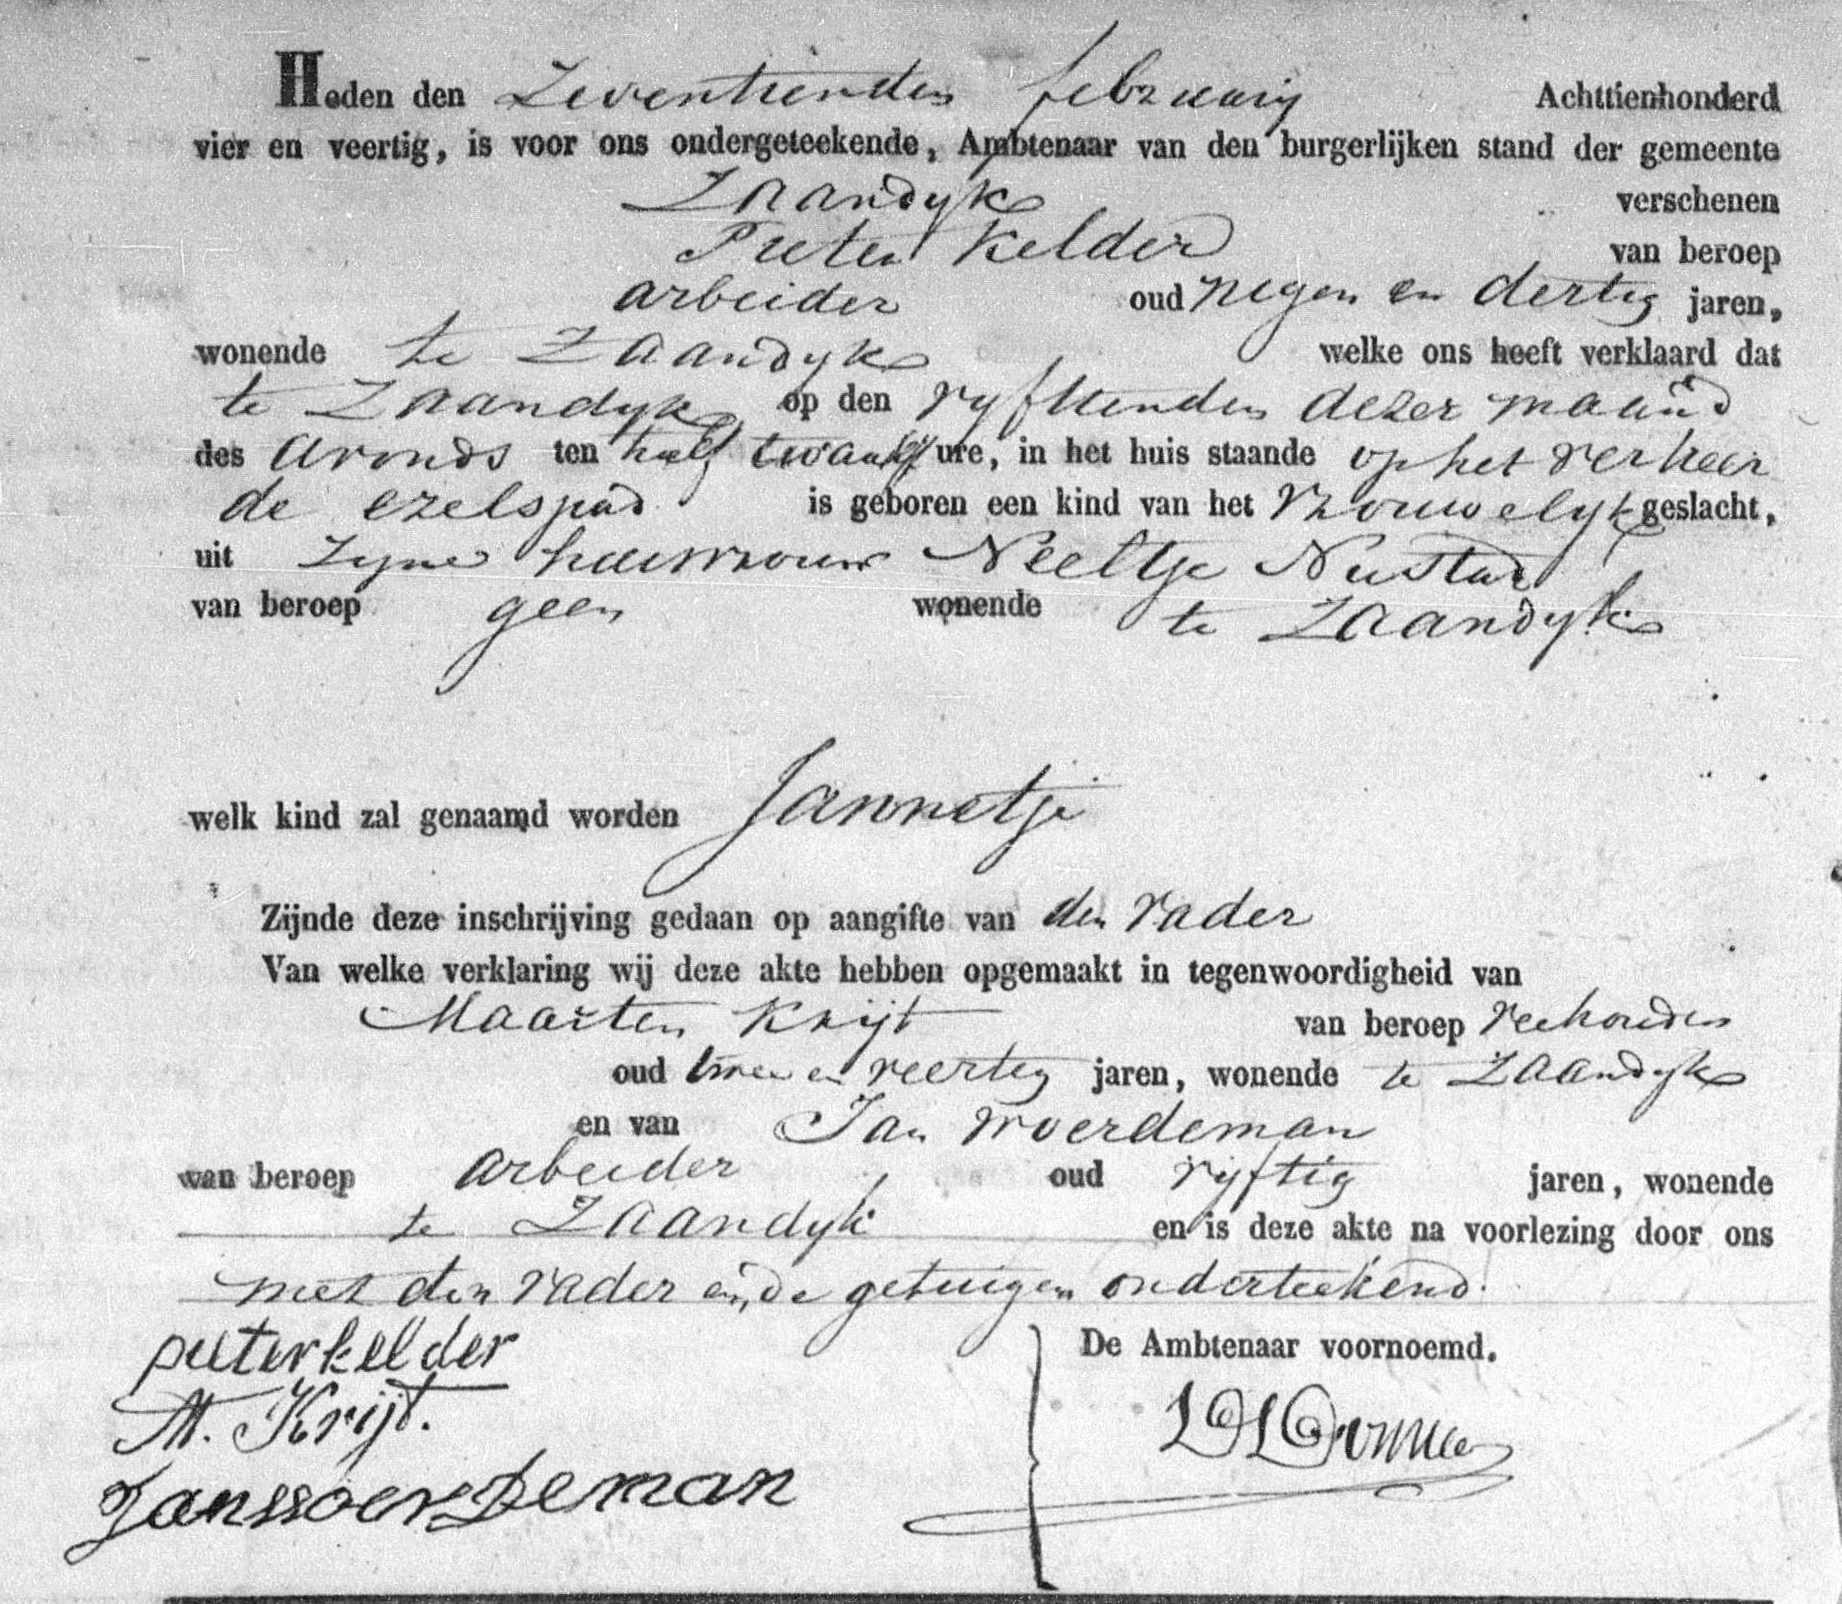 Heden den Zeventienden februarij Achttienhonderd
vier en veertig, is voor ons ondergeteekende, Ambtenaar van den burgerlijken stand der gemeente
Zaandyk verschenen
Pieter Kelder van beroep
arbeider oud negen en dertig jaren,
wonende te Zaandyk welke ons heeft verklaard dat
te Zaandyk op den vyftienden dezer maand
des avonds ten half twaalf ure, in het huis staande op het verkeer
de ezelspad is geboren een kind van het vrouwelyk geslacht,
uit zyne huisvrouw Neeltje
van beroep geen wonende te Zaandyk
welk kind zal genaamd worden Jannetje
Zijnde deze inschrijving gedaan op aangifte van den vader
Van welke verklaring wij deze akte hebben opgemaakt in tegenwoordigheid van
Maarten Krijt van beroep veehouder
oud twee en veertig jaren, wonende te Zaandyk
en van Jan Woerdeman
van beroep arbeider oud vijftig jaren, wonende
te Zaandyk en is deze akte na voorlezing door ons
met den vader en de getuigen onderteekend.
pieter kelder De Ambtenaar voornoemd.
M. Krijt.